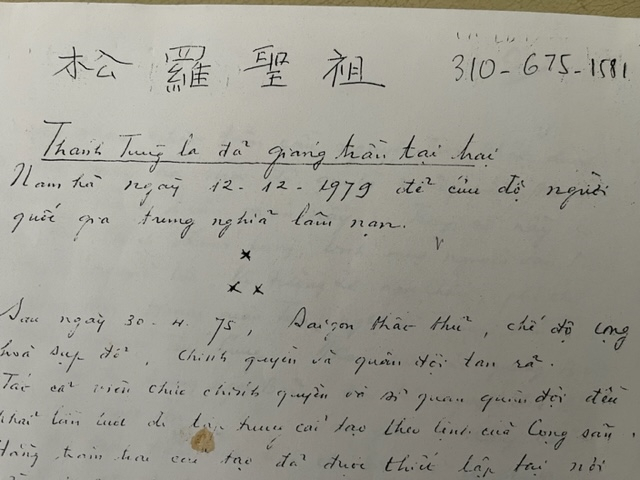 松 羅 聖 祖 310-675-1581
Thánh Tùng la đã giáng trần tại trại
Nam hà ngày 12-12-1979 để cứu độ người
quốc gia trung nghĩa lâm nạn.
x
x x
Sau ngày 30-4-75, Saigon thất thủ, chế độ Cộng
hoà sụp đổ, chính quyền và quân đội tan rã.
Tất cả viên chức chính quyền và sĩ quan quân đội đều
phải lần lượt đi tập trung cải tạo theo lệnh của Cộng sản.
Hàng trăm trại cải tạo đã được thiết lập tại nơi